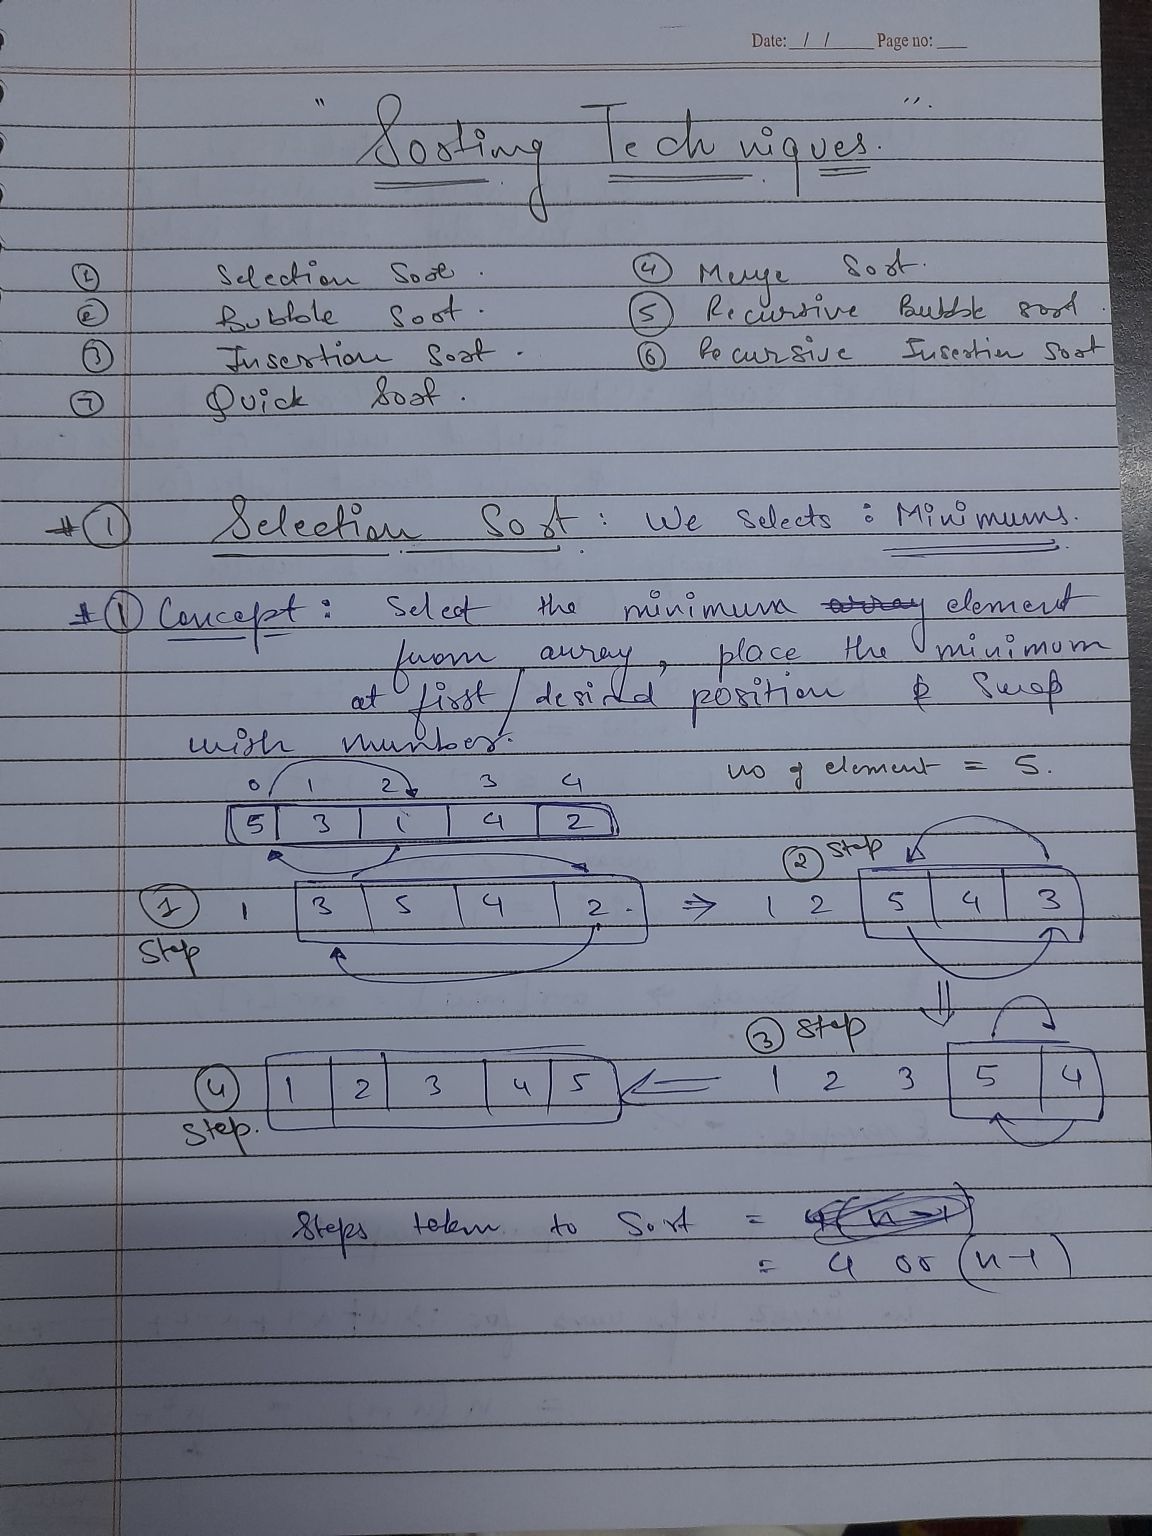 Date: / / Page no:
" Sorting Techniques. ".
① Selection Sort. ④ Merge Sort.
② Bubble Sort. ⑤ Recursive Bubble sort.
③ Insertion Sort. ⑥ Recursive Insertion Sort
⑦ Quick Sort.
# ① Selection Sort: We Selects : Minimums.
# ① Concept: Select the minimum element
from array, place the minimum
at first / desired position & Swap
with number.
no of element = 5.
0 1 2 3 4
5 3 1 4 2
② Step
① 1 3 5 4 2 ⇒ 1 2 5 4 3
Step
⇓
③ Step
④ 1 2 3 4 5 ⇐ 1 2 3 5 4
Step.
Steps taken to Sort = 4(n-1)
= 4 or (n-1)